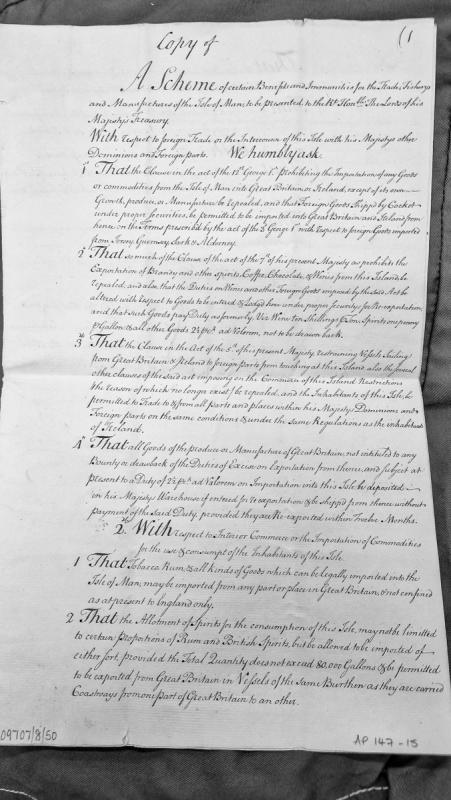 Copy of
(1
A Scheme of certain Benefits and Immunities for the Trade, Fisherys
and Manufactures of the Isle of Man; to be presented to the Rt. Honble. The Lords of his
Majestys Treasury.
With respect to foreign Trade or the Intercourse of this Isle with his Majestys other
Dominions and Foreign parts. We humbly ask
1st That the Clause in the act of the 12th George 1st prohibiting the Importation of any Goods
or commodities from the Isle of Man into Great Britain or Ireland, except of its own
Growth, produce or Manufacture be repealed, and that Foreign Goods Shipp'd by Cocket
under proper Securities, be permitted to be imported into Great Britain and Ireland from
hence on the Terms prescribed by the act of the 3d George 1st with respect to foreign Goods imported
from Jersey, Guernsey, Sark & Alderney.
2d That so much of the Clause of the act of the 7th of his present Majesty as prohibits the
Exportation of Brandy and other spirits, Coffee, Chocolate, & Wines from this Island, be
repealed, and also that the Duties on Wines and other Foreign Goods imposed by the said Act be
altered with respect to Goods to be entered & Lodged here under proper securitys for Re-exportation,
and that such Goods pay Duty as formerly, Viz Wine ten Shillings Ton Spirits one penny
Gallon & all other Goods 2½ ad Valorem, not to be drawn back.
3d That the Clause in the Act of the 5th of his present Majesty restraining Vessels Sailing
from Great Britain & Ireland to foreign parts from touching at this Island also the several
other clauses of the said act imposing on the Commerce of this Island Restrictions
the reason of which no longer exist / be repealed, and the Inhabitants of this Isle, be
permitted to Trade to & from all parts and places within his Majestys Dominions and
Foreign parts on the same conditions & under the same Regulations as the inhabitants
of Ireland.
4th That all Goods of the produce or Manufacture of Great Britain not intitled to any
Bounty or drawback of the Duties of Excise on Exportation from thence, and subject at
present to a Duty of 2½ ad Valorem on Importation into this Isle, be deposited
in his Majestys Warehouse if entered for re exportation & be shipp'd from thence without
payment of the said Duty, provided they are Re-exported within Twelve Months.
2d. With respect to Interior Commerce or the Importation of Commodities
for the use & consumpt of the Inhabitants of this Isle.
1 That Tobacco, Rum, & all kinds of Goods which can be legally imported into the
Isle of Man; may be imported from any part or place in Great Britain, & not confined
as at present to England only.
2 That the Allotment of Spirits for the consumption of this Isle, may not be limitted
to certain proportions of Rum and British Spirits, but be allowed to be imported of
either sort, provided the Total Quantity does not exceed 80,000 Gallons & be permitted
to be exported from Great Britain in Vessels of the same Burthen as they are carried
Coastways from one part of Great Britain to an other.
09707/8/50
AP 147-15